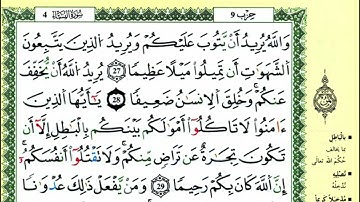 4 سُورَةُ النِّسَاءِ حزب 9
وَاللَّهُ يُرِيدُ أَنْ يَتُوبَ عَلَيْكُمْ وَيُرِيدُ الذِينَ يَتَّبِعُونَ
الشَّهَوَاتِ أَن تَمِيلُواْ مَيْلًا عَظِيمًا 27 يُرِيدُ اللَّهُ أَنْ يُخَفِّفَ
عَنكُمْ وَخُلِقَ الِانسَٰنُ ضَعِيفًا 28 يَٰأَيُّهَا الذِينَ
ءَامَنُواْ لَا تَاكُلُواْ أَمْوَٰلَكُم بَيْنَكُم بِالْبَٰطِلِ إِلَّا أَن
تَكُونَ تِجَٰرَةٌ عَن تَرَاضٍ مِّنكُمْ وَلَا تَقْتُلُواْ أَنفُسَكُمْ
إِنَّ اللَّهَ كَانَ بِكُمْ رَحِيمًا 29 وَمَنْ يَّفْعَلْ ذَٰلِكَ عُدْوَٰنًا
بالباطل
بما يخالف
حكم الله تعالى
نصليه
مدخلا كريما